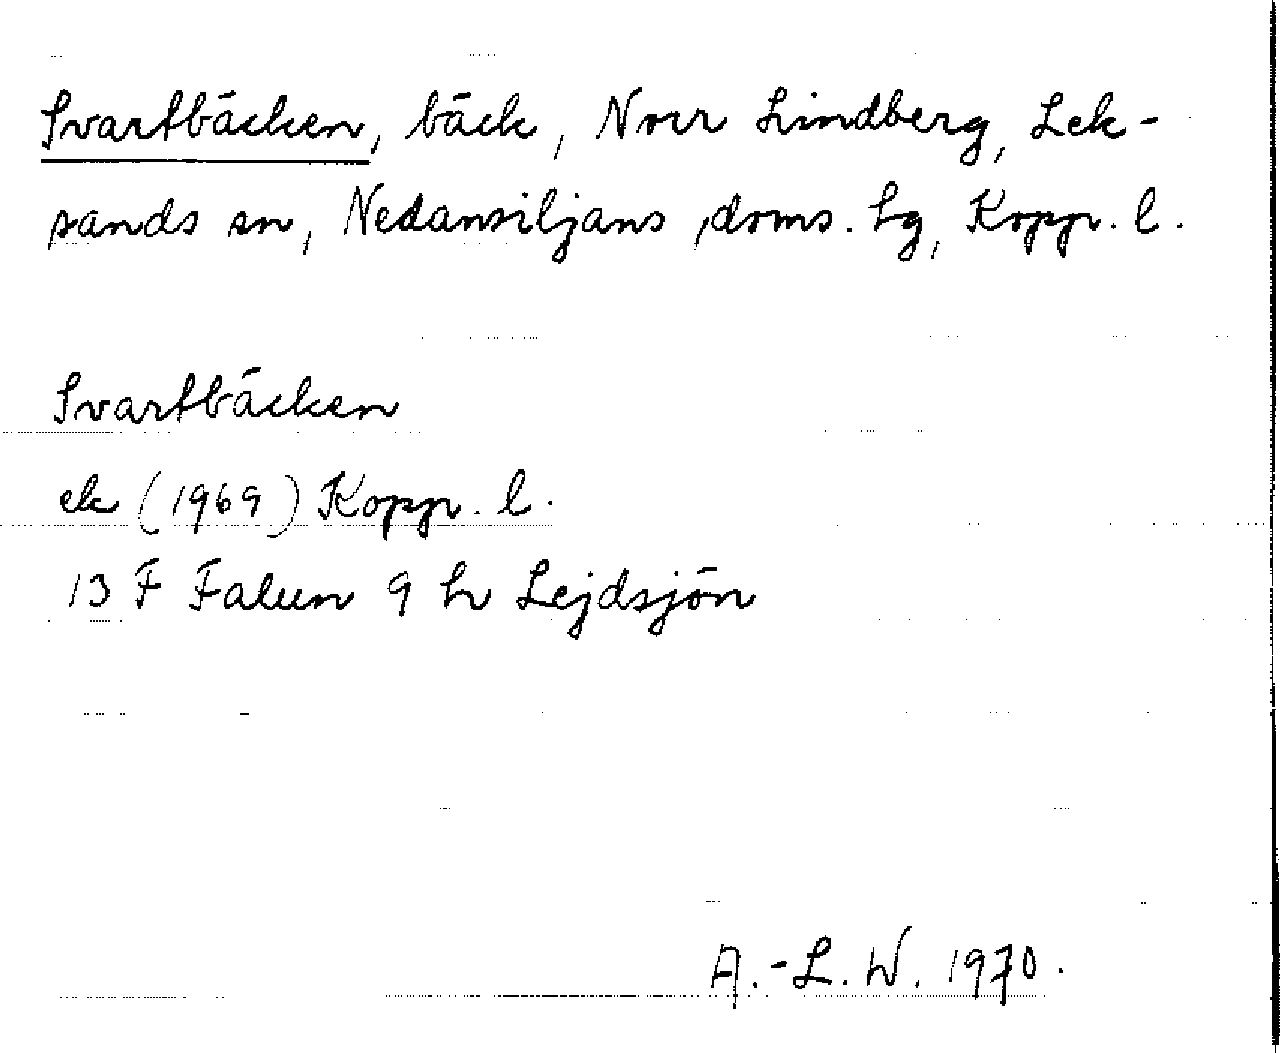 Svartbäcken, bäck, Norr Lindberg, Lek-
sands sn, Nedansiljans doms. hg, Kopp. l.
Svartbäcken
ek (1969) Kopp. l.
13 F Falun 9 h Lejdsjön
A.-L. W. 1970.